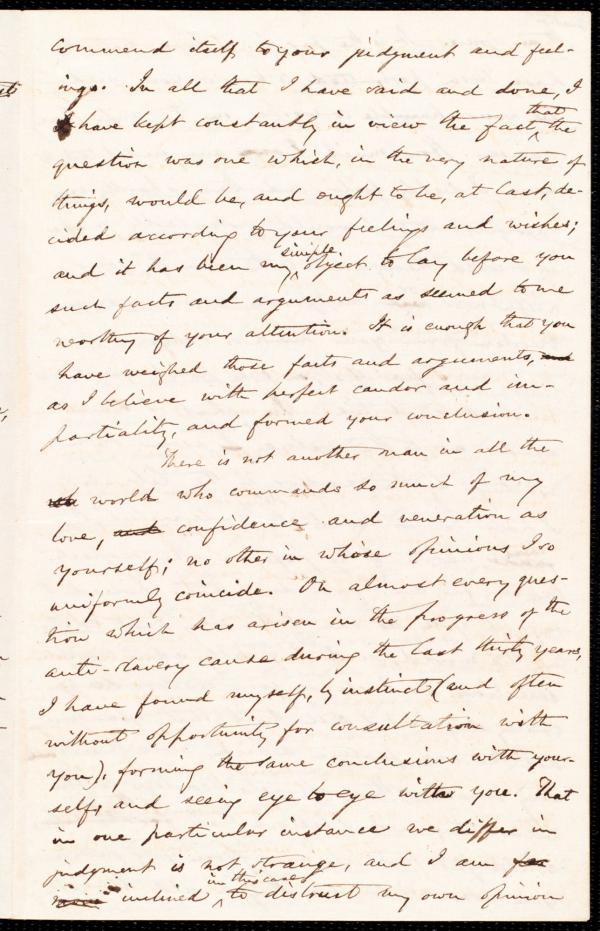 commend itself to your judgment and feel-
ings. In all that I have said and done, I
have kept constantly in view the fact that the
question was one which, in the very nature of
things, would be, and ought to be, at last, de-
cided according to your feelings and wishes;
and it has been my simple object to lay before you
such facts and arguments as seemed to me
worthy of your attention. It is enough that you
have weighed those facts and arguments, and
as I believe with perfect candor and im-
partiality, and formed your conclusion.
There is not another man in all the
world who commands so much of my
love, and confidence and veneration as
yourself; no other in whose opinions I so
uniformly coincide. On almost every ques-
tion which has arisen in the progress of the
anti-slavery cause during the last thirty years,
I have found myself, by instinct (and often
without opportunity for consultation with
you), forming the same conclusions with your-
self, and seeing eye to eye with you. That
in one particular instance we differ in
judgment is not strange, and I am far
inclined in this case to distrust my own opinion